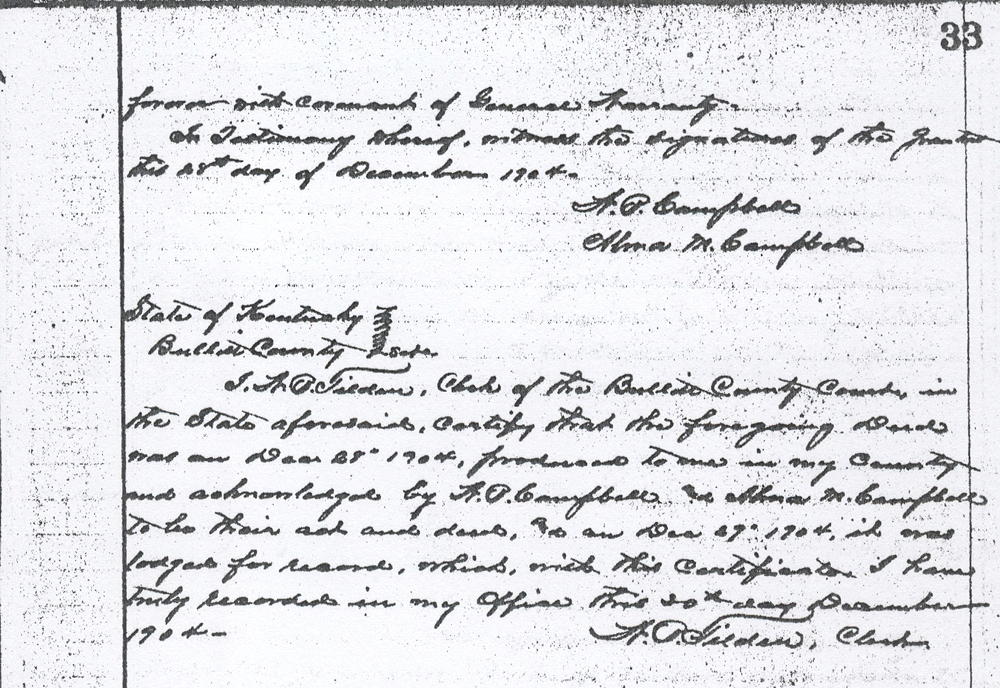 33
forever with covenant of General Warranty.
In Testimony whereof, witness the signatures of the Grantors
this 28th day of December 1904.
A.P. Campbell
Alma M. Campbell
State of Kentucky
Bullitt County } Sct.
I, Tilden, Clerk of the Bullitt County Court, in
the State aforesaid, certify that the foregoing Deed
was on Dec 28" 1904, produced to me in my County
and acknowledged by A.P. Campbell &d Alma M. Campbell
to be their act and deed, &d on Dec 29" 1904, it was
lodged for record, which, with this certificate I have
truly recorded in my Office this day December
1904 - Tilden, Clerk